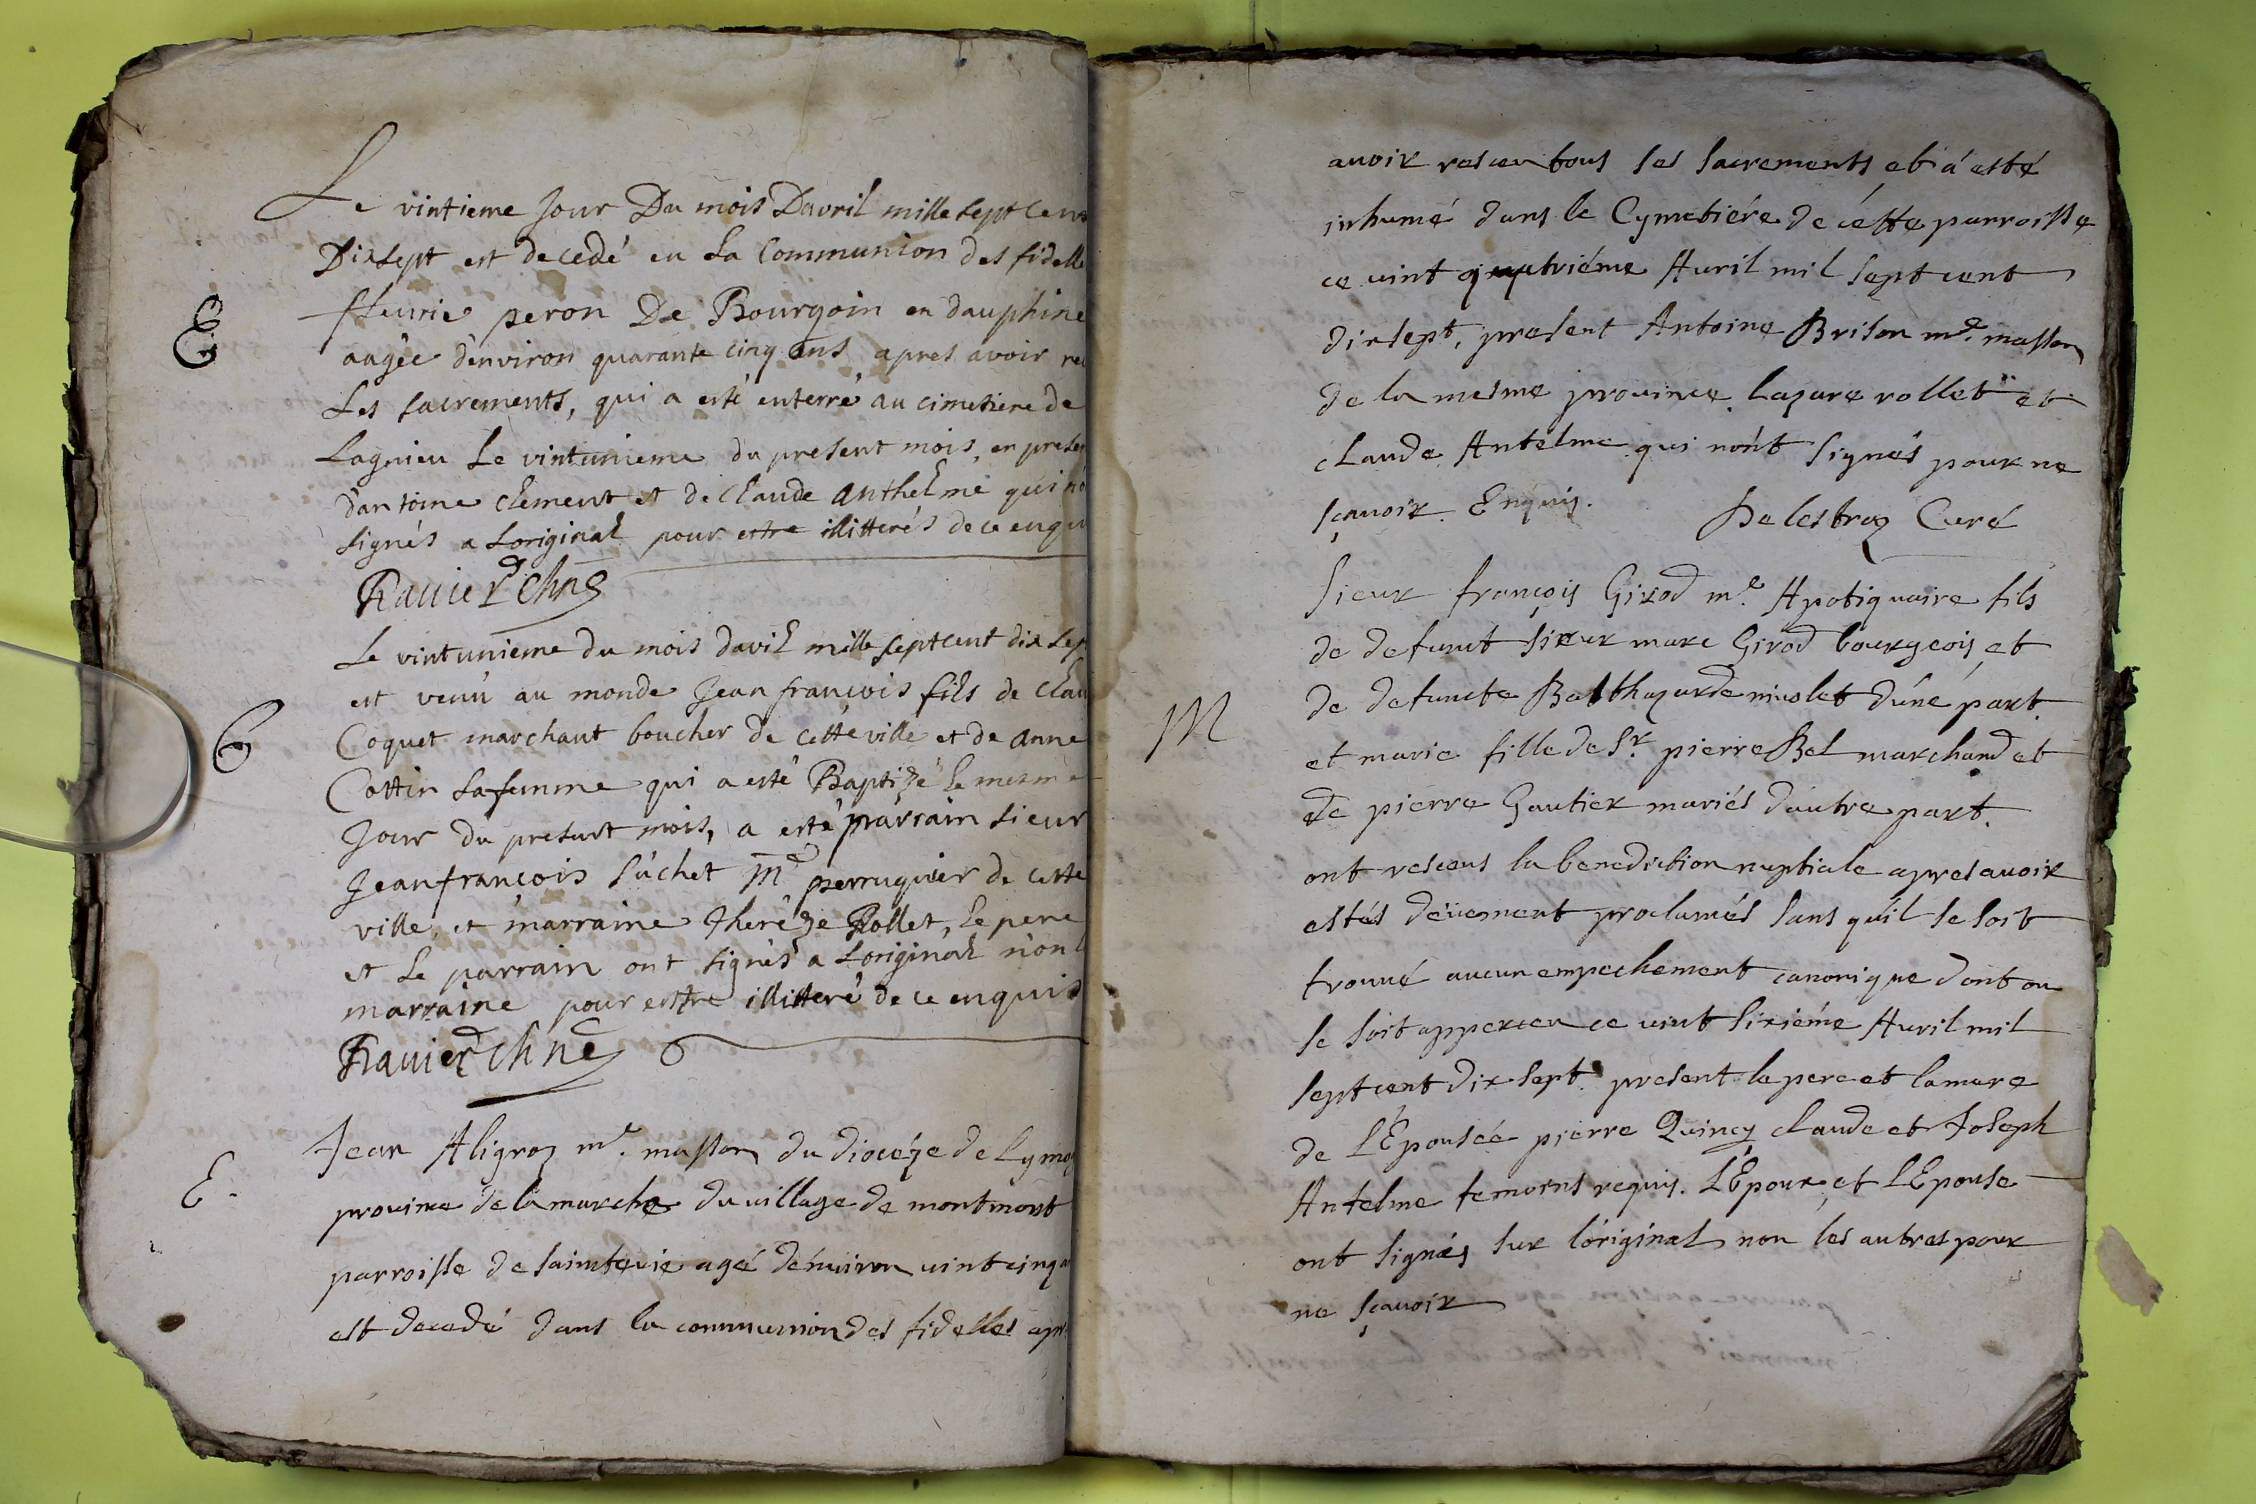 Le vintieme Jour Du mois Davril mille sept cent
Dixsept est decedé en La Communion des fidelle
E
fleurie peron De Bourgoin en dauphine
aagée denviron quarante cinq ans apres avoir
Les sacrements, qui a esté enterré au cimetiere de
Lagnieu Le vintunieme du present mois, en presen
d'antoine clement et de claude anthelme qui
signés a Loriginal pour estre illitterés de ce enqu
Ravier
Le vintunieme du mois davil mille septcent dix sep
est venu au monde Jean françois fils de Clau
Coquet marchant boucher de cette ville et de anne
Cottin sa femme qui a esté Baptizé le mesme
Jour du present mois, a esté parrain sieur
Jeanfrancois suchet Me perruquier de cette
ville, et marraine thereze Rollet, le pere
et le parrain ont signés a Loriginal non l
marraine pour estre illitteré de ce enquis
Ravier
E.
Jean Aligroz me. masson du diocéze de Lymo
province de la marche du village de montmont
parroisse de agé dénuiron uint cinq
est decedé dans la communion des fidelles apr
auoir resceu tous ses sacrements et á esté
inhumé dans le Cymetiére de cétte parroisse
ce uint quatriéme Auril mil sept cent
dix sept, present Antoine Brison me. masson
de la mesme prouince Lazare rollet et
claude Antelme qui nónt signés pour ne
sçauoir Enquis. Delestraz Curé
M
Sieur françois Girod me. Apotiquaire fils
de defunct sieur marc Girod bourgeois et
de defuncte Balthazarde nicolet d'úne part
et marie fille de Sr. pierre Bel marchand et
de pierre Gautier mariés dáutre part.
ont resceus la benediction nuptiale apres auoir
estés deüement proclamés sans qúil se soit
trouué aucun empechement canonique dont on
se soit apperceu ce uint sixiéme Auril mil
sept cent dix sept. present le pere et la mere
de LÉpousée pierre Quincy claude et Joseph
Antelme temoins requis. LÉpoux et LEpouse
ont signés sur lóriginal non les autres pour
ne sçauoir